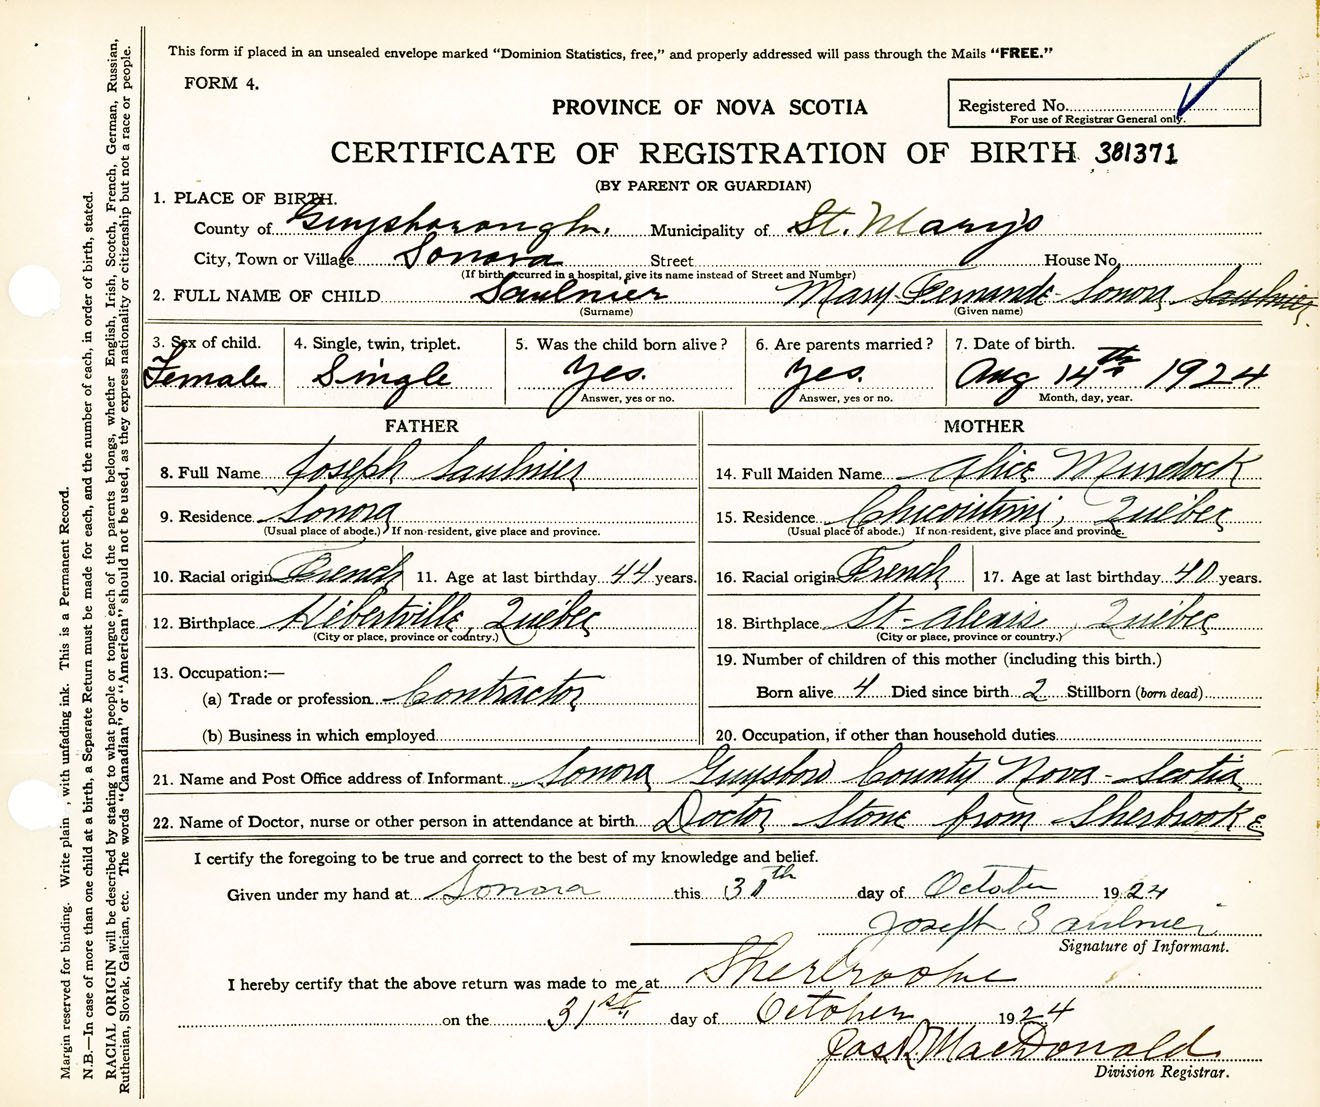 This form if placed in an unsealed envelope marked "Dominion Statistics, free," and properly addressed will pass through the Mails "FREE."
FORM 4.
PROVINCE OF NOVA SCOTIA
Registered No.
For use of Registrar General only.
CERTIFICATE OF REGISTRATION OF BIRTH 381371
(BY PARENT OR GUARDIAN)
1. PLACE OF BIRTH.
County of Guysborough. Municipality of St. Mary's
City, Town or Village Sonora Street House No.
(If birth occurred in a hospital, give its name instead of Street and Number)
2. FULL NAME OF CHILD Saulnier Mary Fernande Sonora Saulnier.
(Surname) (Given name)
3. Sex of child. 4. Single, twin, triplet. 5. Was the child born alive? 6. Are parents married? 7. Date of birth.
Female Single Yes. Yes. Aug 14th 1924
Answer, yes or no. Answer, yes or no. Month, day, year.
FATHER MOTHER
8. Full Name Joseph Saulnier 14. Full Maiden Name Alice Murdock
9. Residence Sonora 15. Residence Chicoutimi, Québec
(Usual place of abode.) If non-resident, give place and province. (Usual place of abode.) If non-resident, give place and province.
10. Racial origin French 11. Age at last birthday 44 years. 16. Racial origin French 17. Age at last birthday 40 years.
12. Birthplace Hébertville, Québec 18. Birthplace St-Alexis Québec
(City or place, province or country.) (City or place, province or country.)
13. Occupation:— 19. Number of children of this mother (including this birth.)
(a) Trade or profession Contractor Born alive 4 Died since birth 2 Stillborn (born dead)
(b) Business in which employed 20. Occupation, if other than household duties
21. Name and Post Office address of Informant Sonora Guysboro County Nova-Scotia
22. Name of Doctor, nurse or other person in attendance at birth Doctor Stone from Sherbrooke
I certify the foregoing to be true and correct to the best of my knowledge and belief.
Given under my hand at Sonora this 30th day of October 1924
Joseph Saulnier
Signature of Informant.
I hereby certify that the above return was made to me at Sherbrooke
on the 31st day of October 1924
Jas R. MacDonald
Division Registrar.
Margin reserved for binding. Write plain , with unfading ink. This is a Permanent Record.
N.B.—In case of more than one child at a birth, a Separate Return must be made for each, and the number of each, in order of birth, stated.
RACIAL ORIGIN will be described by stating to what people or tongue each of the parents belongs, whether English, Irish, Scotch, French, German, Russian,
Ruthenian, Slovak, Galician, etc. The words "Canadian" or "American" should not be used, as they express nationality or citizenship but not a race or people.